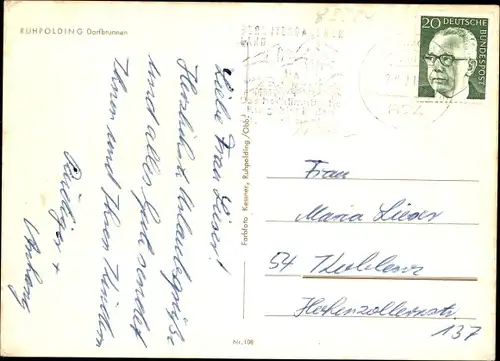 RUHPOLDING Dorfbrunnen
Liebe Frau Lieser!
Herzliche Urlaubsgrüße
und alles Gute sendet
Ihnen und Ihren Kindern
Rüdiger +
Anhang
Farbfoto Kessner, Ruhpolding/Obb.
Nr. 106
20 DEUTSCHE
BUNDESPOST
Frau
Maria Lieser
54 Koblenz
Hohenzollernstr.
137